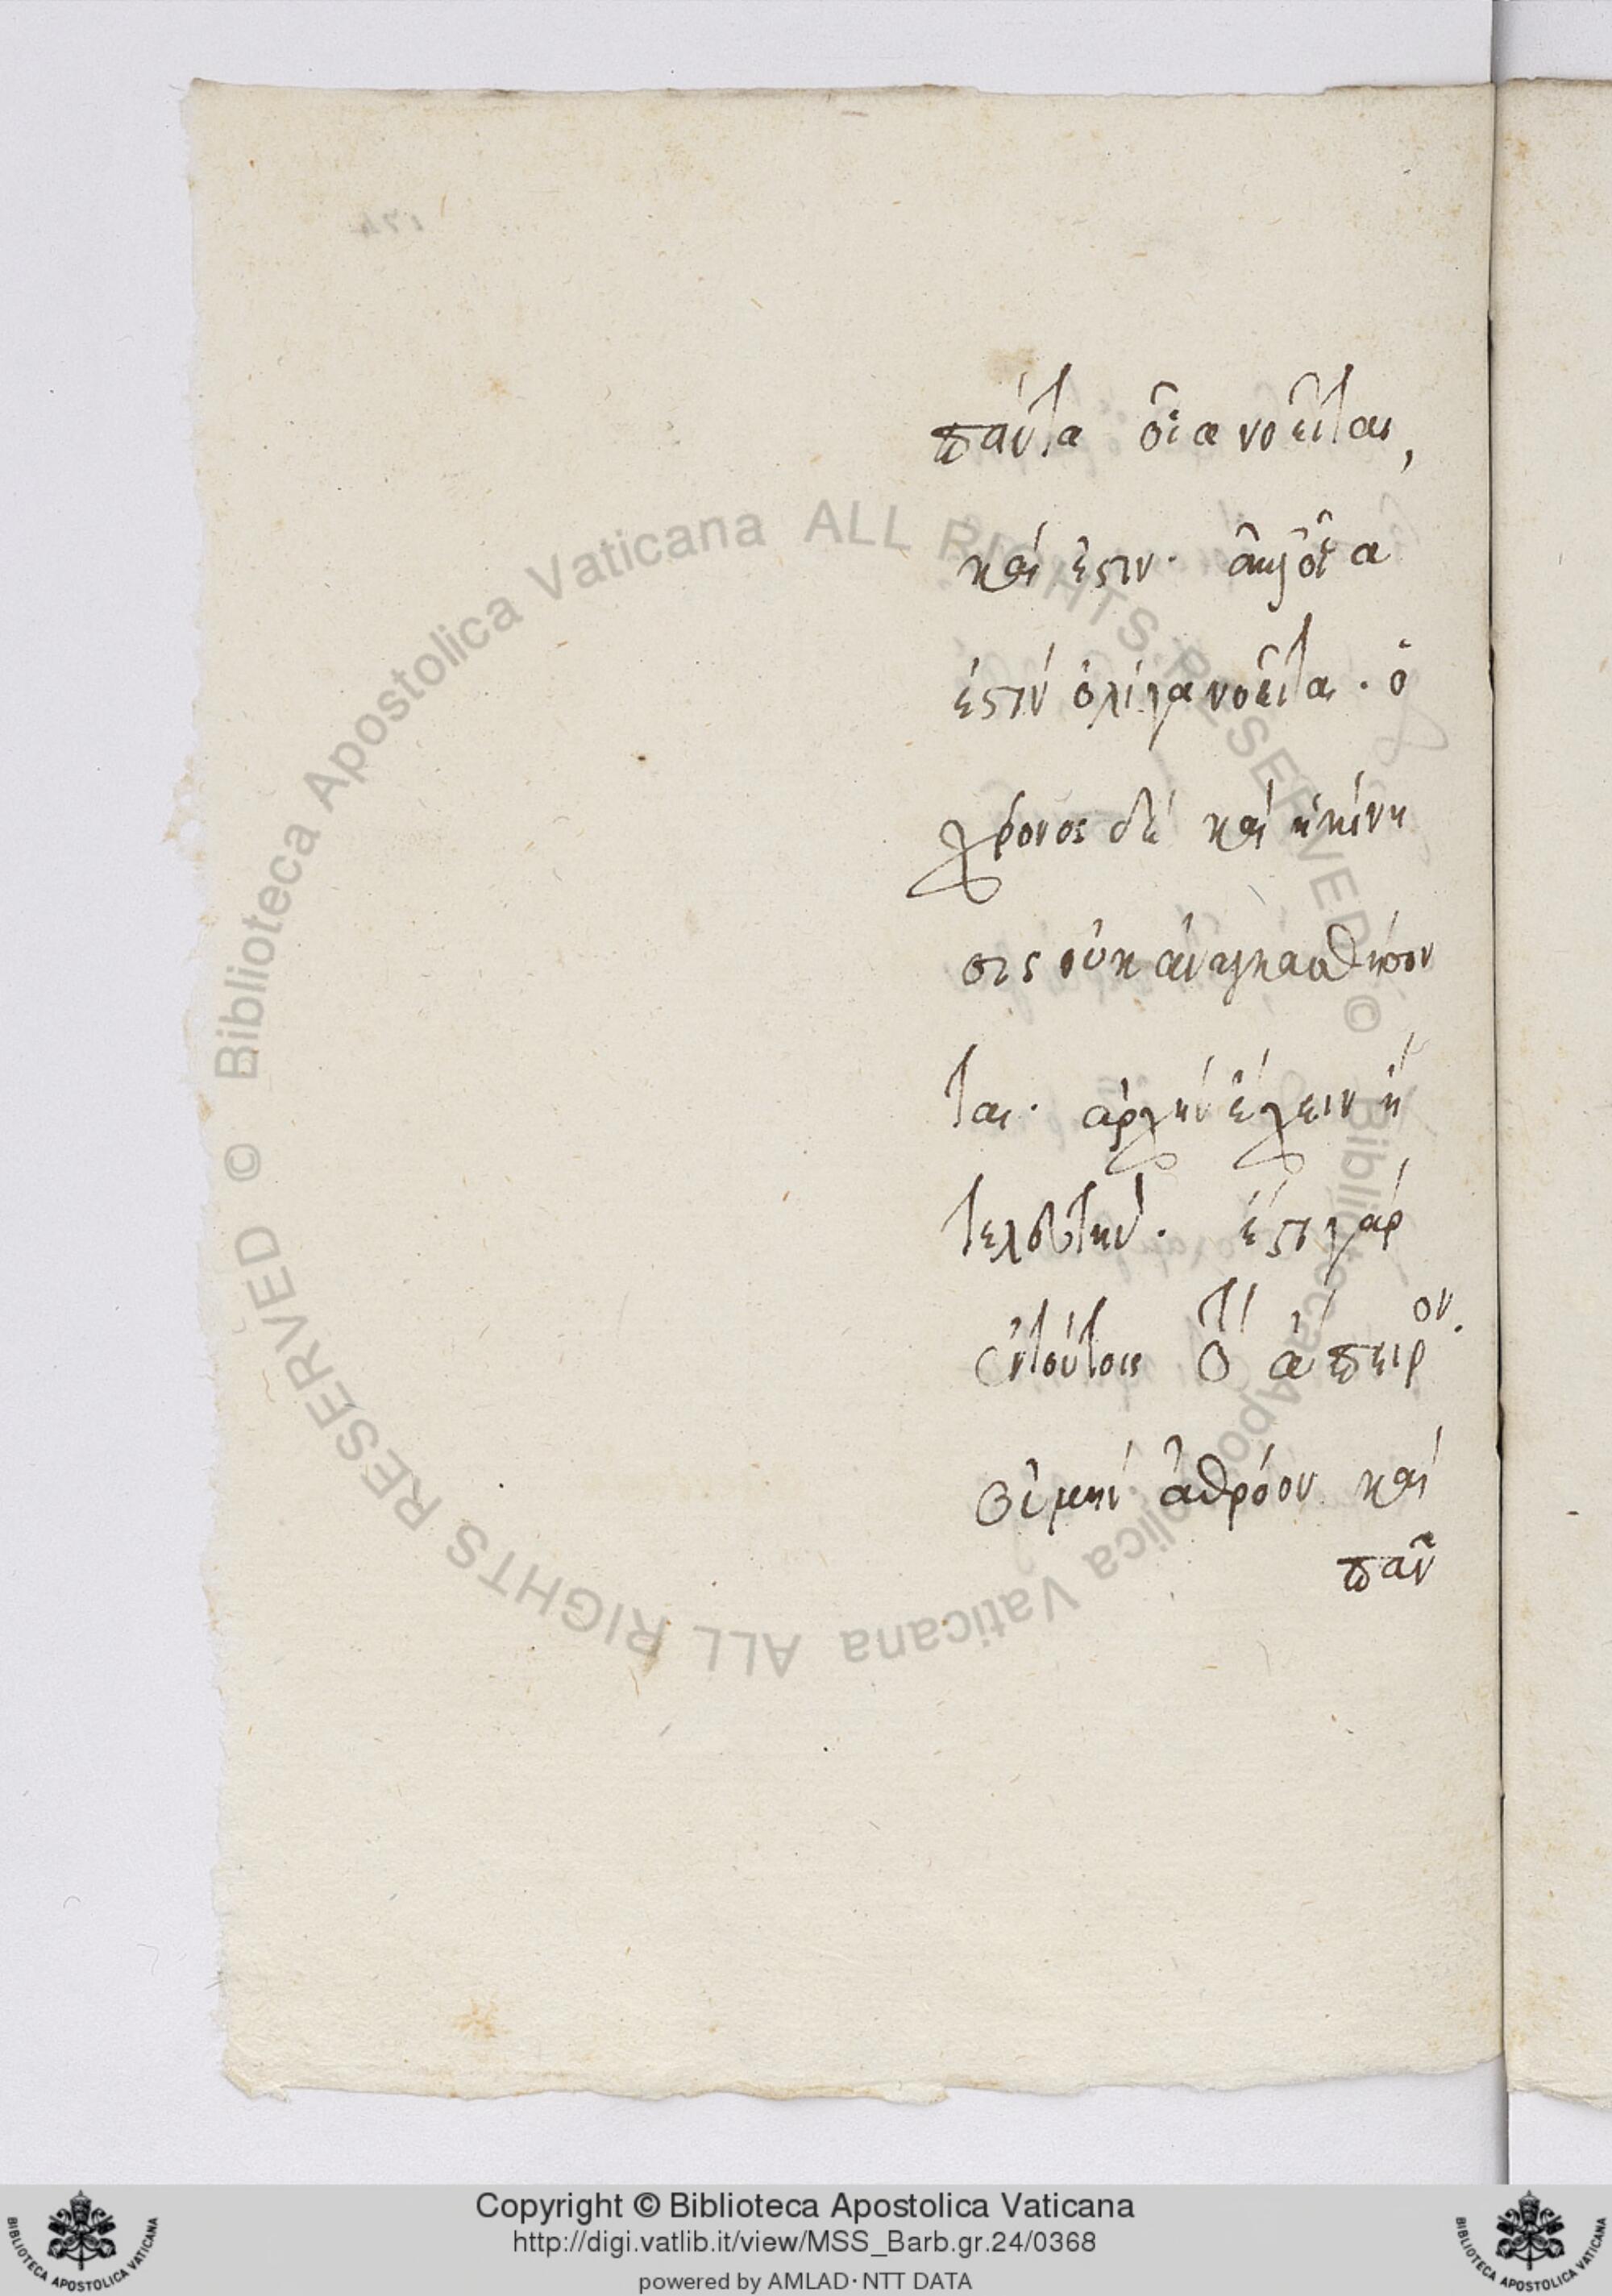 πάντα οἷα νοεῖται,
καί ἐστιν· ἆκαὶ οἷα
ἐστὶν ὀλίγα νοεῖται. ὁ
χρόνος δὲ καὶ ἡ κίνη
σις οὐκ ἀναγκασθήσον
ται· ἀρχὴν ἔχειν ἢ
τελευτήν. ἔστι γάρ
ἐν τούτοις τὸ ἄπειρον.
οὐ μὴν ἀθρόον καὶ
πᾶν
© Biblioteca Apostolica Vaticana ALL RIGHTS RESERVED © Biblioteca Apostolica Vaticana ALL RIGHTS RESERVED
Copyright © Biblioteca Apostolica Vaticana
http://digi.vatlib.it/view/MSS_Barb.gr.24/0368
powered by AMLAD · NTT DATA
BIBLIOTECA APOSTOLICA VATICANA
BIBLIOTECA APOSTOLICA VATICANA